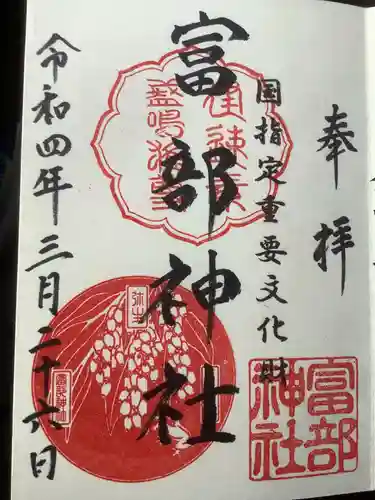 奉拝
国指定重要文化財
富部神社
令和四年三月二十六日
弥生
富部神社
富部神社